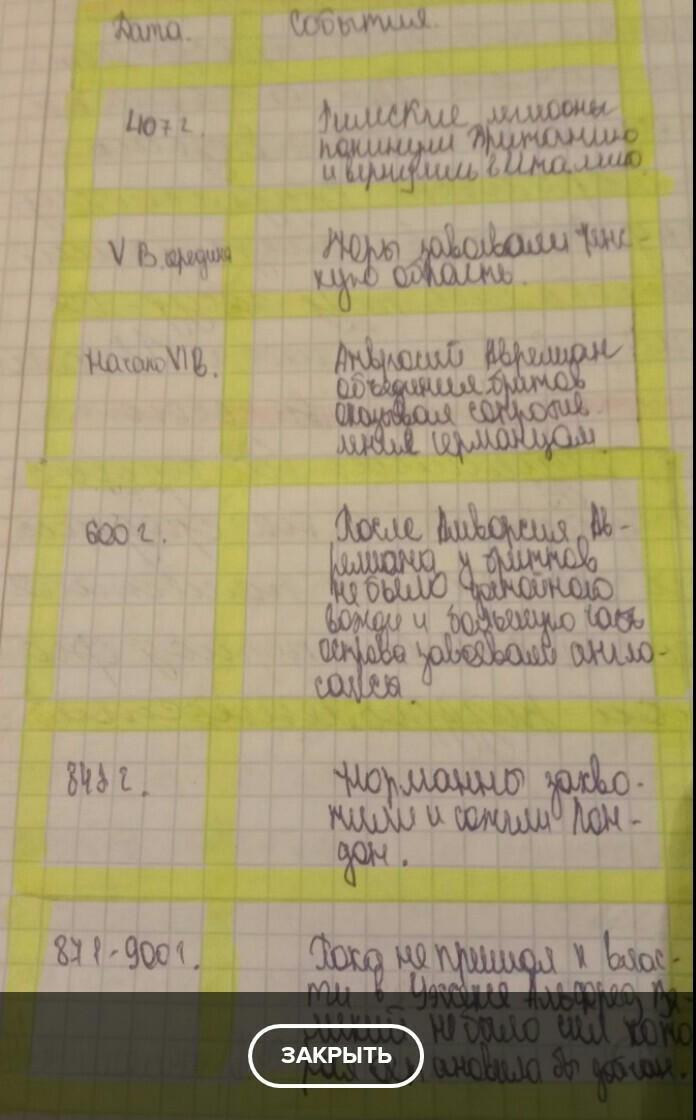 Дата.
События.
407 г.
Римские легионы
покинули Британию
и вернулись в Италию
V в. середина
Юры завоевали Кенс-
кую область.
Начало VI в.
Амвросий Аврелиан
объединил бритов
оказывал сопротив
ление германцам
600 г.
После Амвросия Ав-
релиана у бриттов
не было достойного
вождя и большую часть
острова завоевали англо-
саксы.
Норманны захва-
тили и сожгли Лон-
дон.
871-900 г.
Пока не пришел к влас-
ти в Альфред Ве-
ликий не было сил кото
рая остановила бы датчан.
ЗАКРЫТЬ